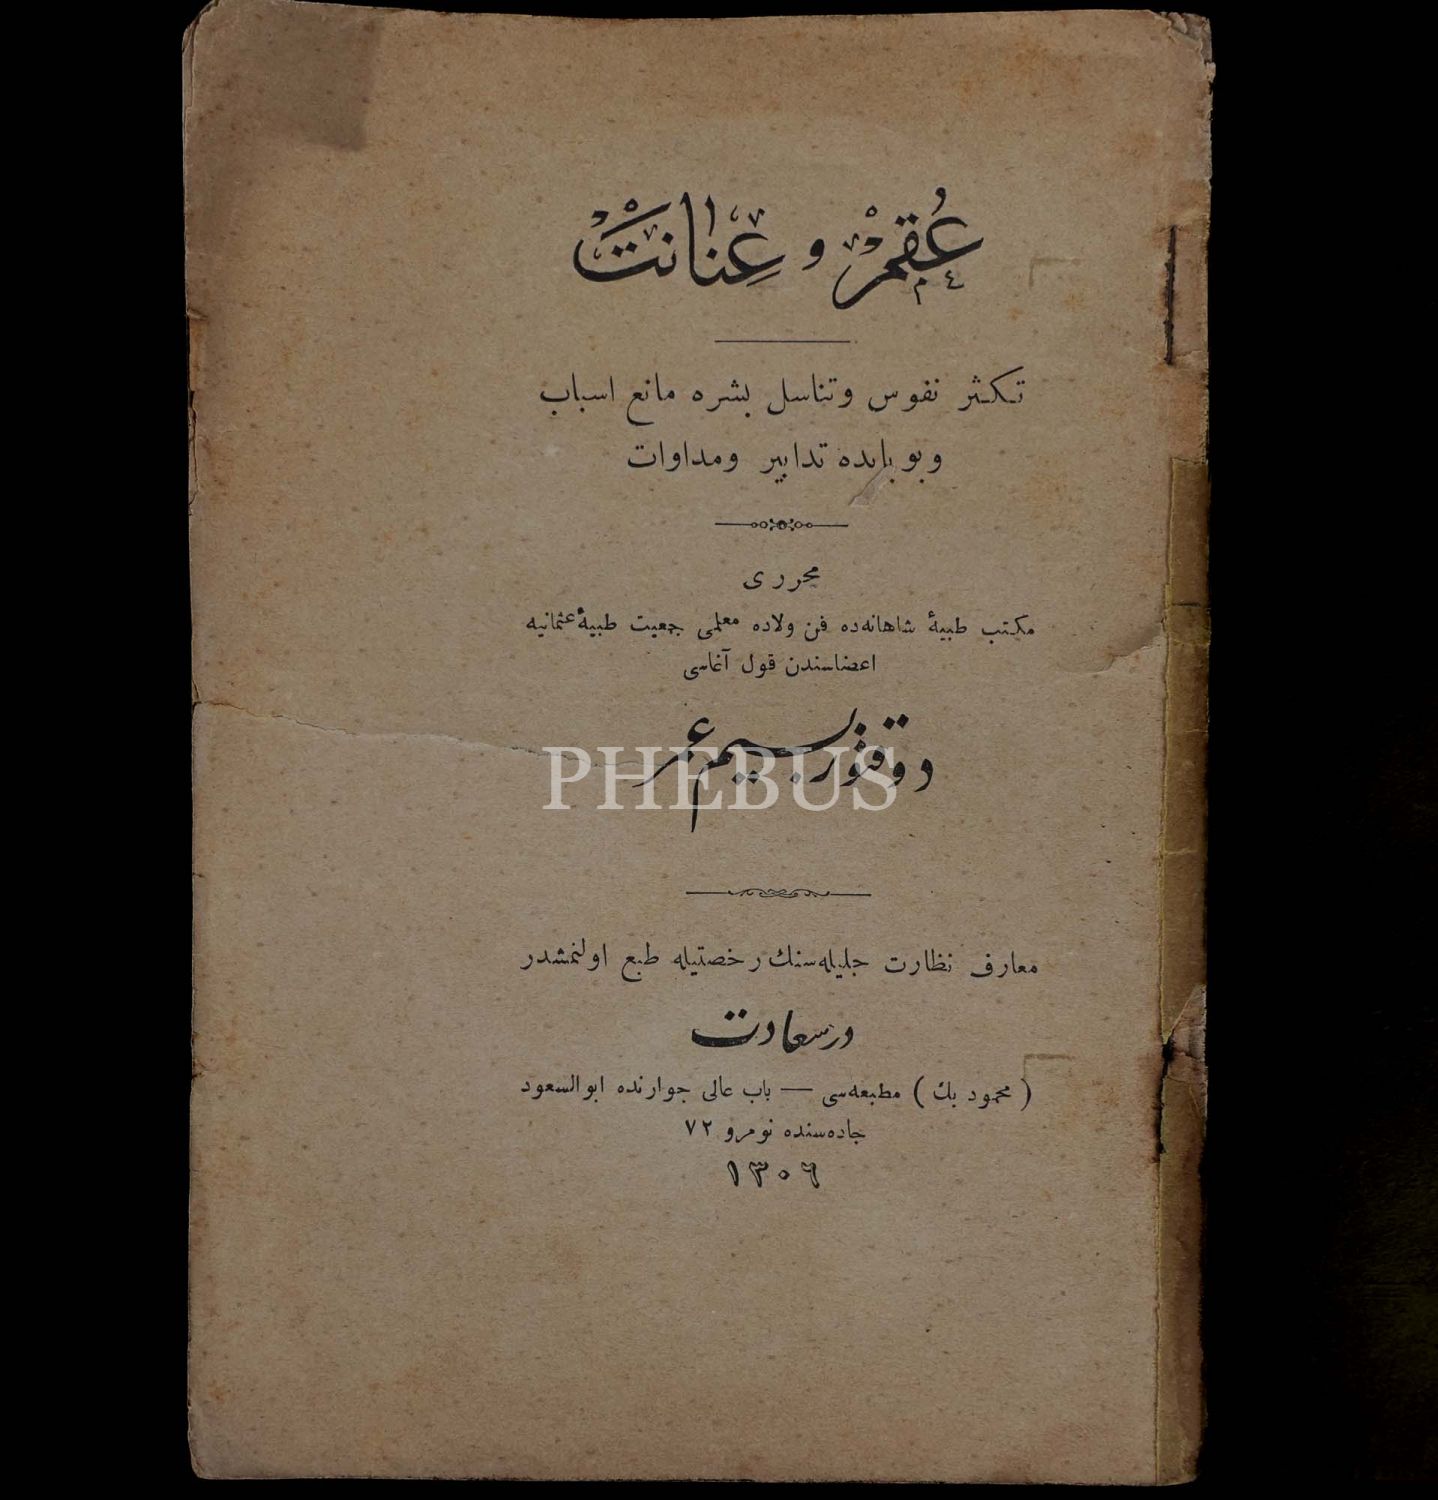 عُقْمْ و عِنانَتْ
تكثر نفوس وتناسل بشره مانع اسباب
وبو بابده تدابير ومداوات
محررى
مكتب طبيهٔ شاهانه‌ده فن ولاده معلمى جمعيت طبيهٔ عثمانيه
اعضاسندن قول آغاسى
دوقتور بسيم عمر
PHEBUS
معارف نظارت جليله‌سنك رخصتيله طبع اولنمشدر
درسعادت
( محمود بك ) مطبعه‌سى — باب عالى جوارنده ابوالسعود
جاده‌سنده نومرو ٧٢
١٣٠٦